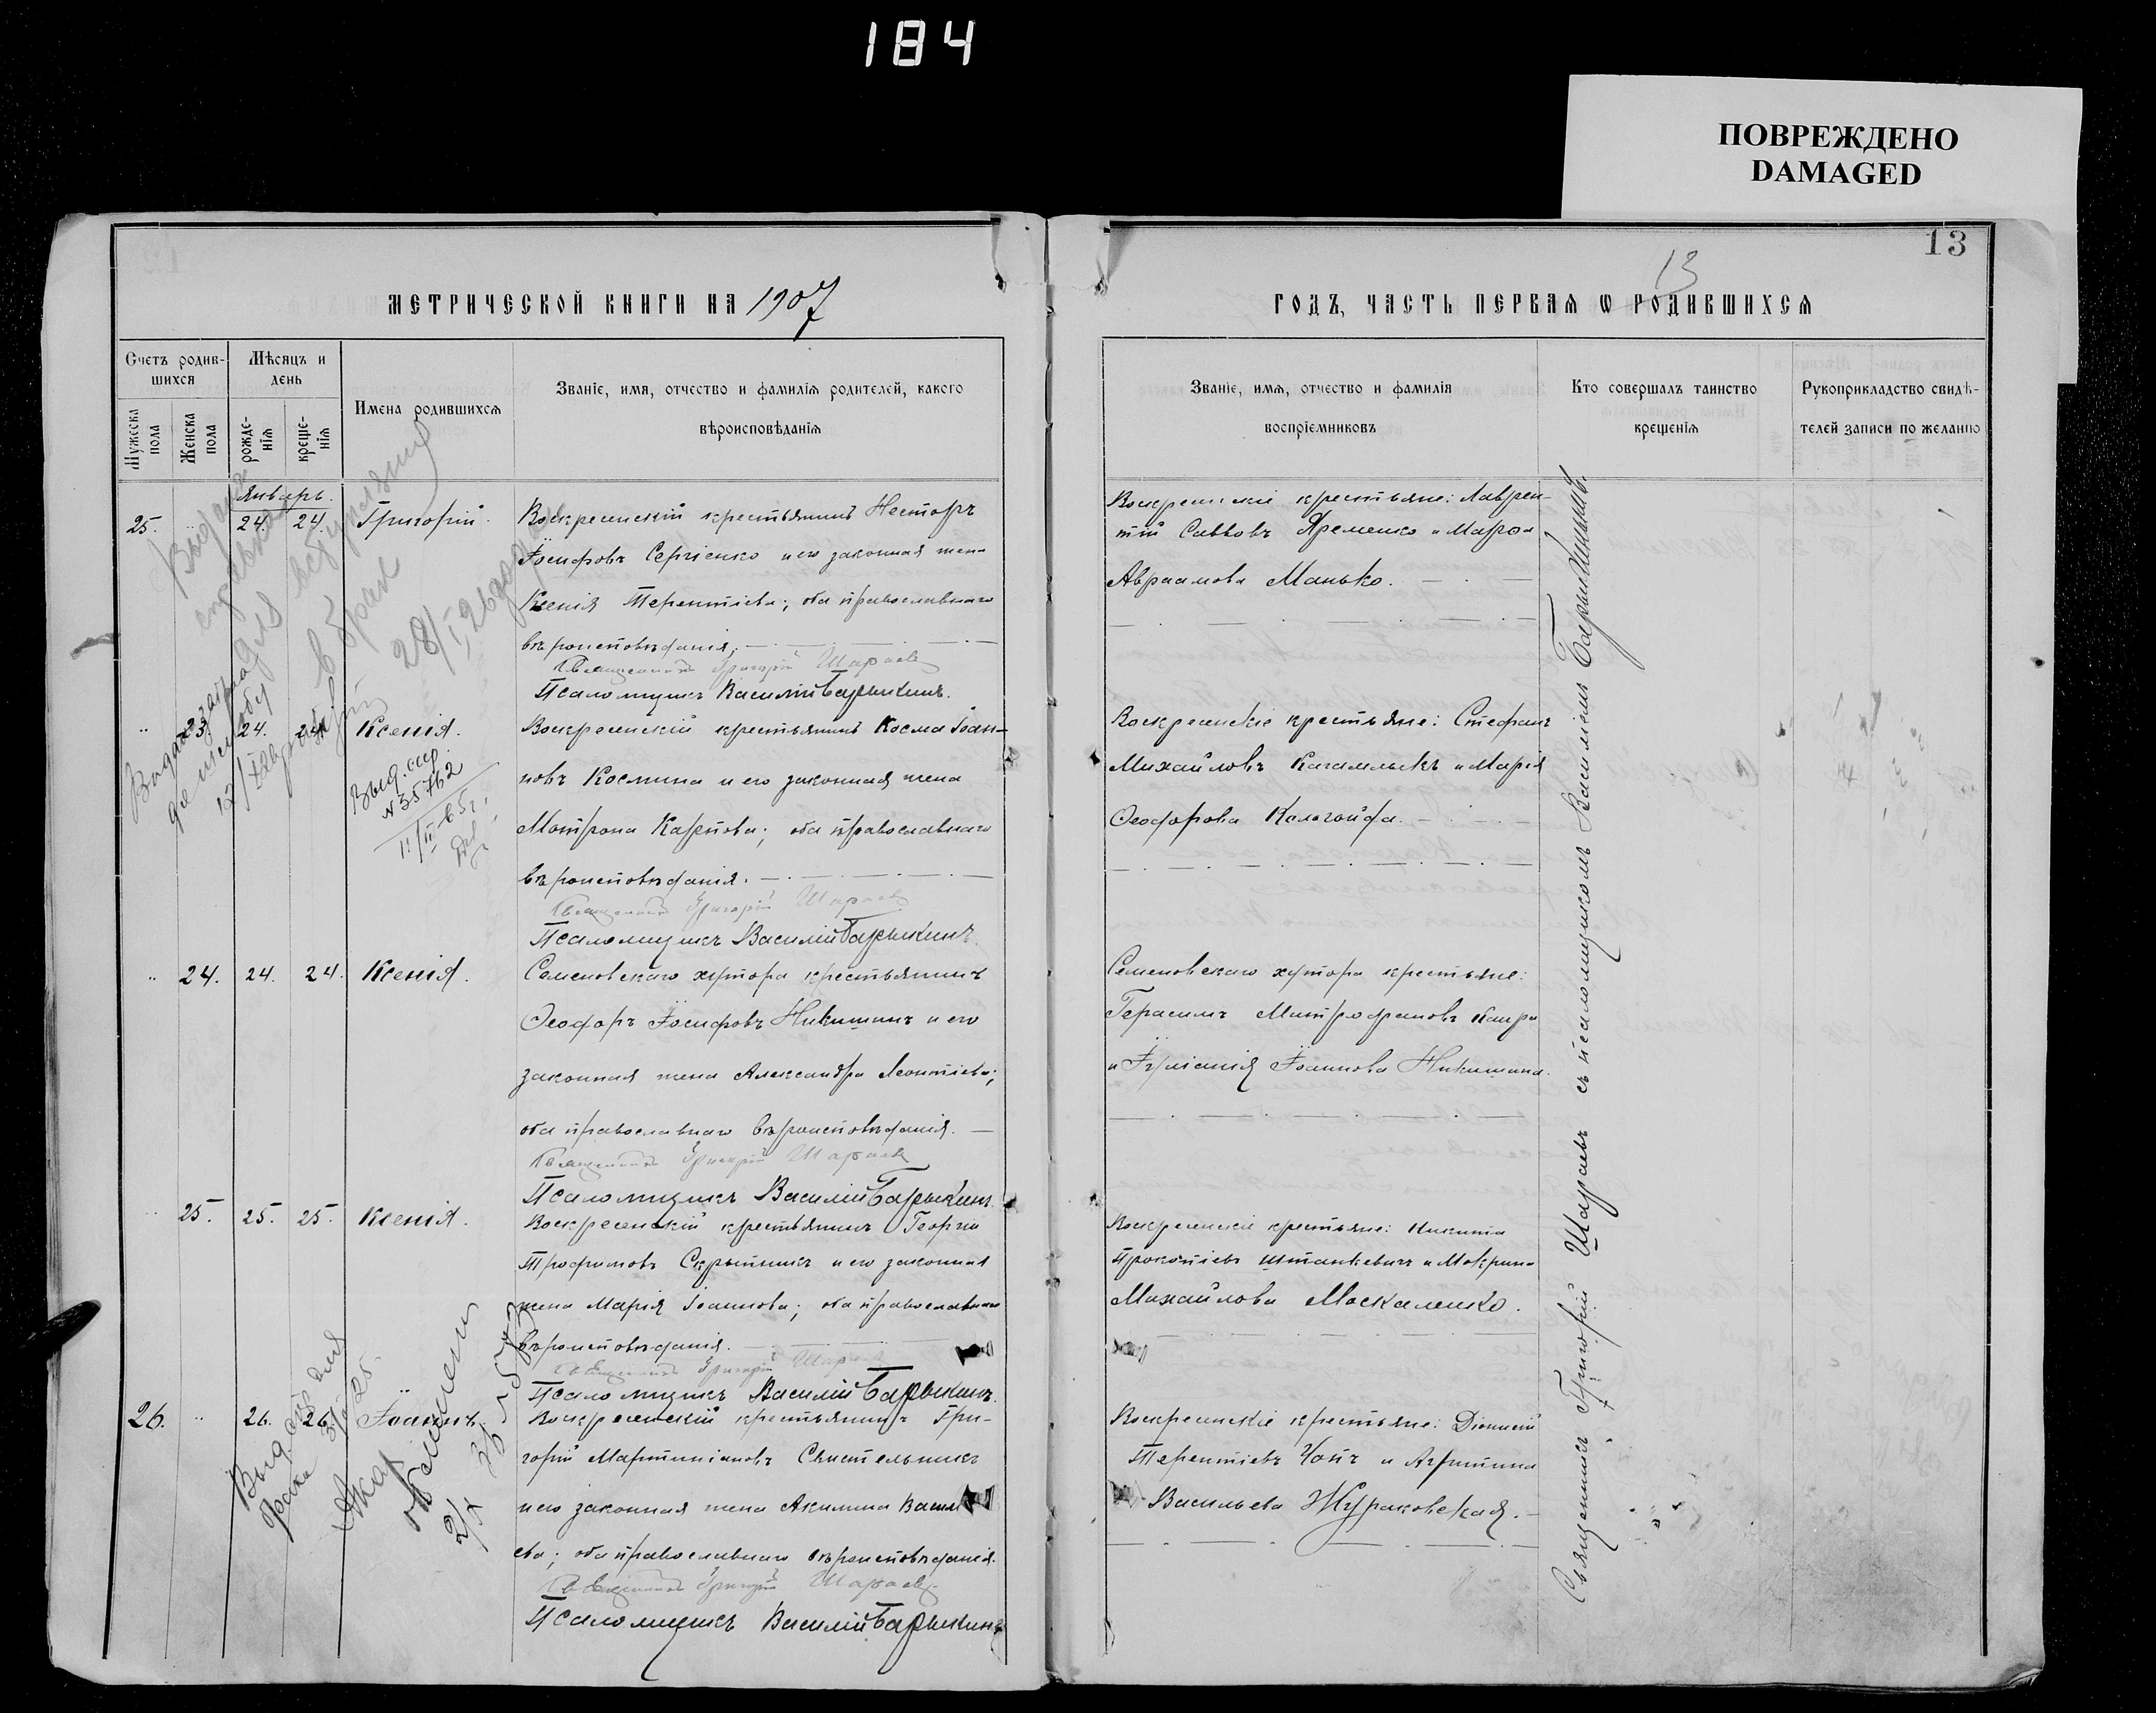 184
ПОВРЕЖДЕНО
DAMAGED
13
13
МЕТРИЧЕСКОЙ КНИГИ НА 1907
ГОДЪ, ЧАСТЬ ПЕРВАЯ Ѡ РОДИВШИХСЯ
Счетъ родив-
шихся
Мужеска пола
Женска пола
Мѣсяцъ и
день
рожде-
нія
креще-
нія
Имена родившихся
Званіе, имя, отчество и фамилія родителей, какого
вѣроисповѣданія
Званіе, имя, отчество и фамилія
воспріемниковъ
Кто совершалъ таинство
крещенія
Рукоприкладство свидѣ-
телей записи по желанію
Январь.
25. 24. 24. Григорій.
Воскресенскій крестьянинъ Несторъ
Іосифовъ Сергіенко и его законная жена
Ксенія Терентіева; оба православнаго
вѣроисповѣданія.
Священникъ Григорій Шараевъ
Псаломщикъ Василій Барыкинъ.
Воскресенскіе крестьяне: Лаврен-
тій Савовъ Яременко и Марѳа
Авраамова Манько.
23. 24. 24. Ксенія.
Воскресенскій крестьянинъ Косма Іоан-
новъ Космина и его законная жена
Матрона Карпова; оба православнаго
вѣроисповѣданія.
Священникъ Григорій Шараевъ
Псаломщикъ Василій Барыкинъ.
Воскресенскіе крестьяне: Стефанъ
Михайловъ и Марія
Ѳеодорова
24. 24. 24. Ксенія.
Семеновскаго хутора крестьянинъ
Ѳеодоръ Іосифовъ Никишинъ и его
законная жена Александра Леонтіева;
оба православнаго вѣроисповѣданія.
Священникъ Григорій Шараевъ
Псаломщикъ Василій Барыкинъ.
Семеновскаго хутора крестьяне:
Герасимъ Митрофановъ
и Іуліанія Іоаннова Никишина.
25. 25. 25. Ксенія.
Воскресенскій крестьянинъ Георгій
Трофимовъ Скрыпникъ и его законная
жена Марія Іоаннова; оба православнаго
вѣроисповѣданія.
Священникъ Григорій Шараевъ
Псаломщикъ Василій Барыкинъ.
Воскресенскіе крестьяне: Никита
Прокопіевъ Штанкевичъ и Макрина
Михайлова Москаленко.
26. 26. 26. Іоаннъ.
Воскресенскій крестьянинъ Гри-
горій Мартиніановъ Свистельникъ
и его законная жена Акилина Василь
ева; оба православнаго вѣроисповѣданія.
Священникъ Григорій Шараевъ
Псаломщикъ Василій Барыкинъ
Воскресенскіе крестьяне: Діонисій
Терентіевъ Чопъ и Агрипина
Васильева Жураковская.
Священникъ Григорій Шараевъ съ псаломщикомъ Василіемъ Барыкинымъ.
в брак
28/I 26 года
Выд.
N 35762